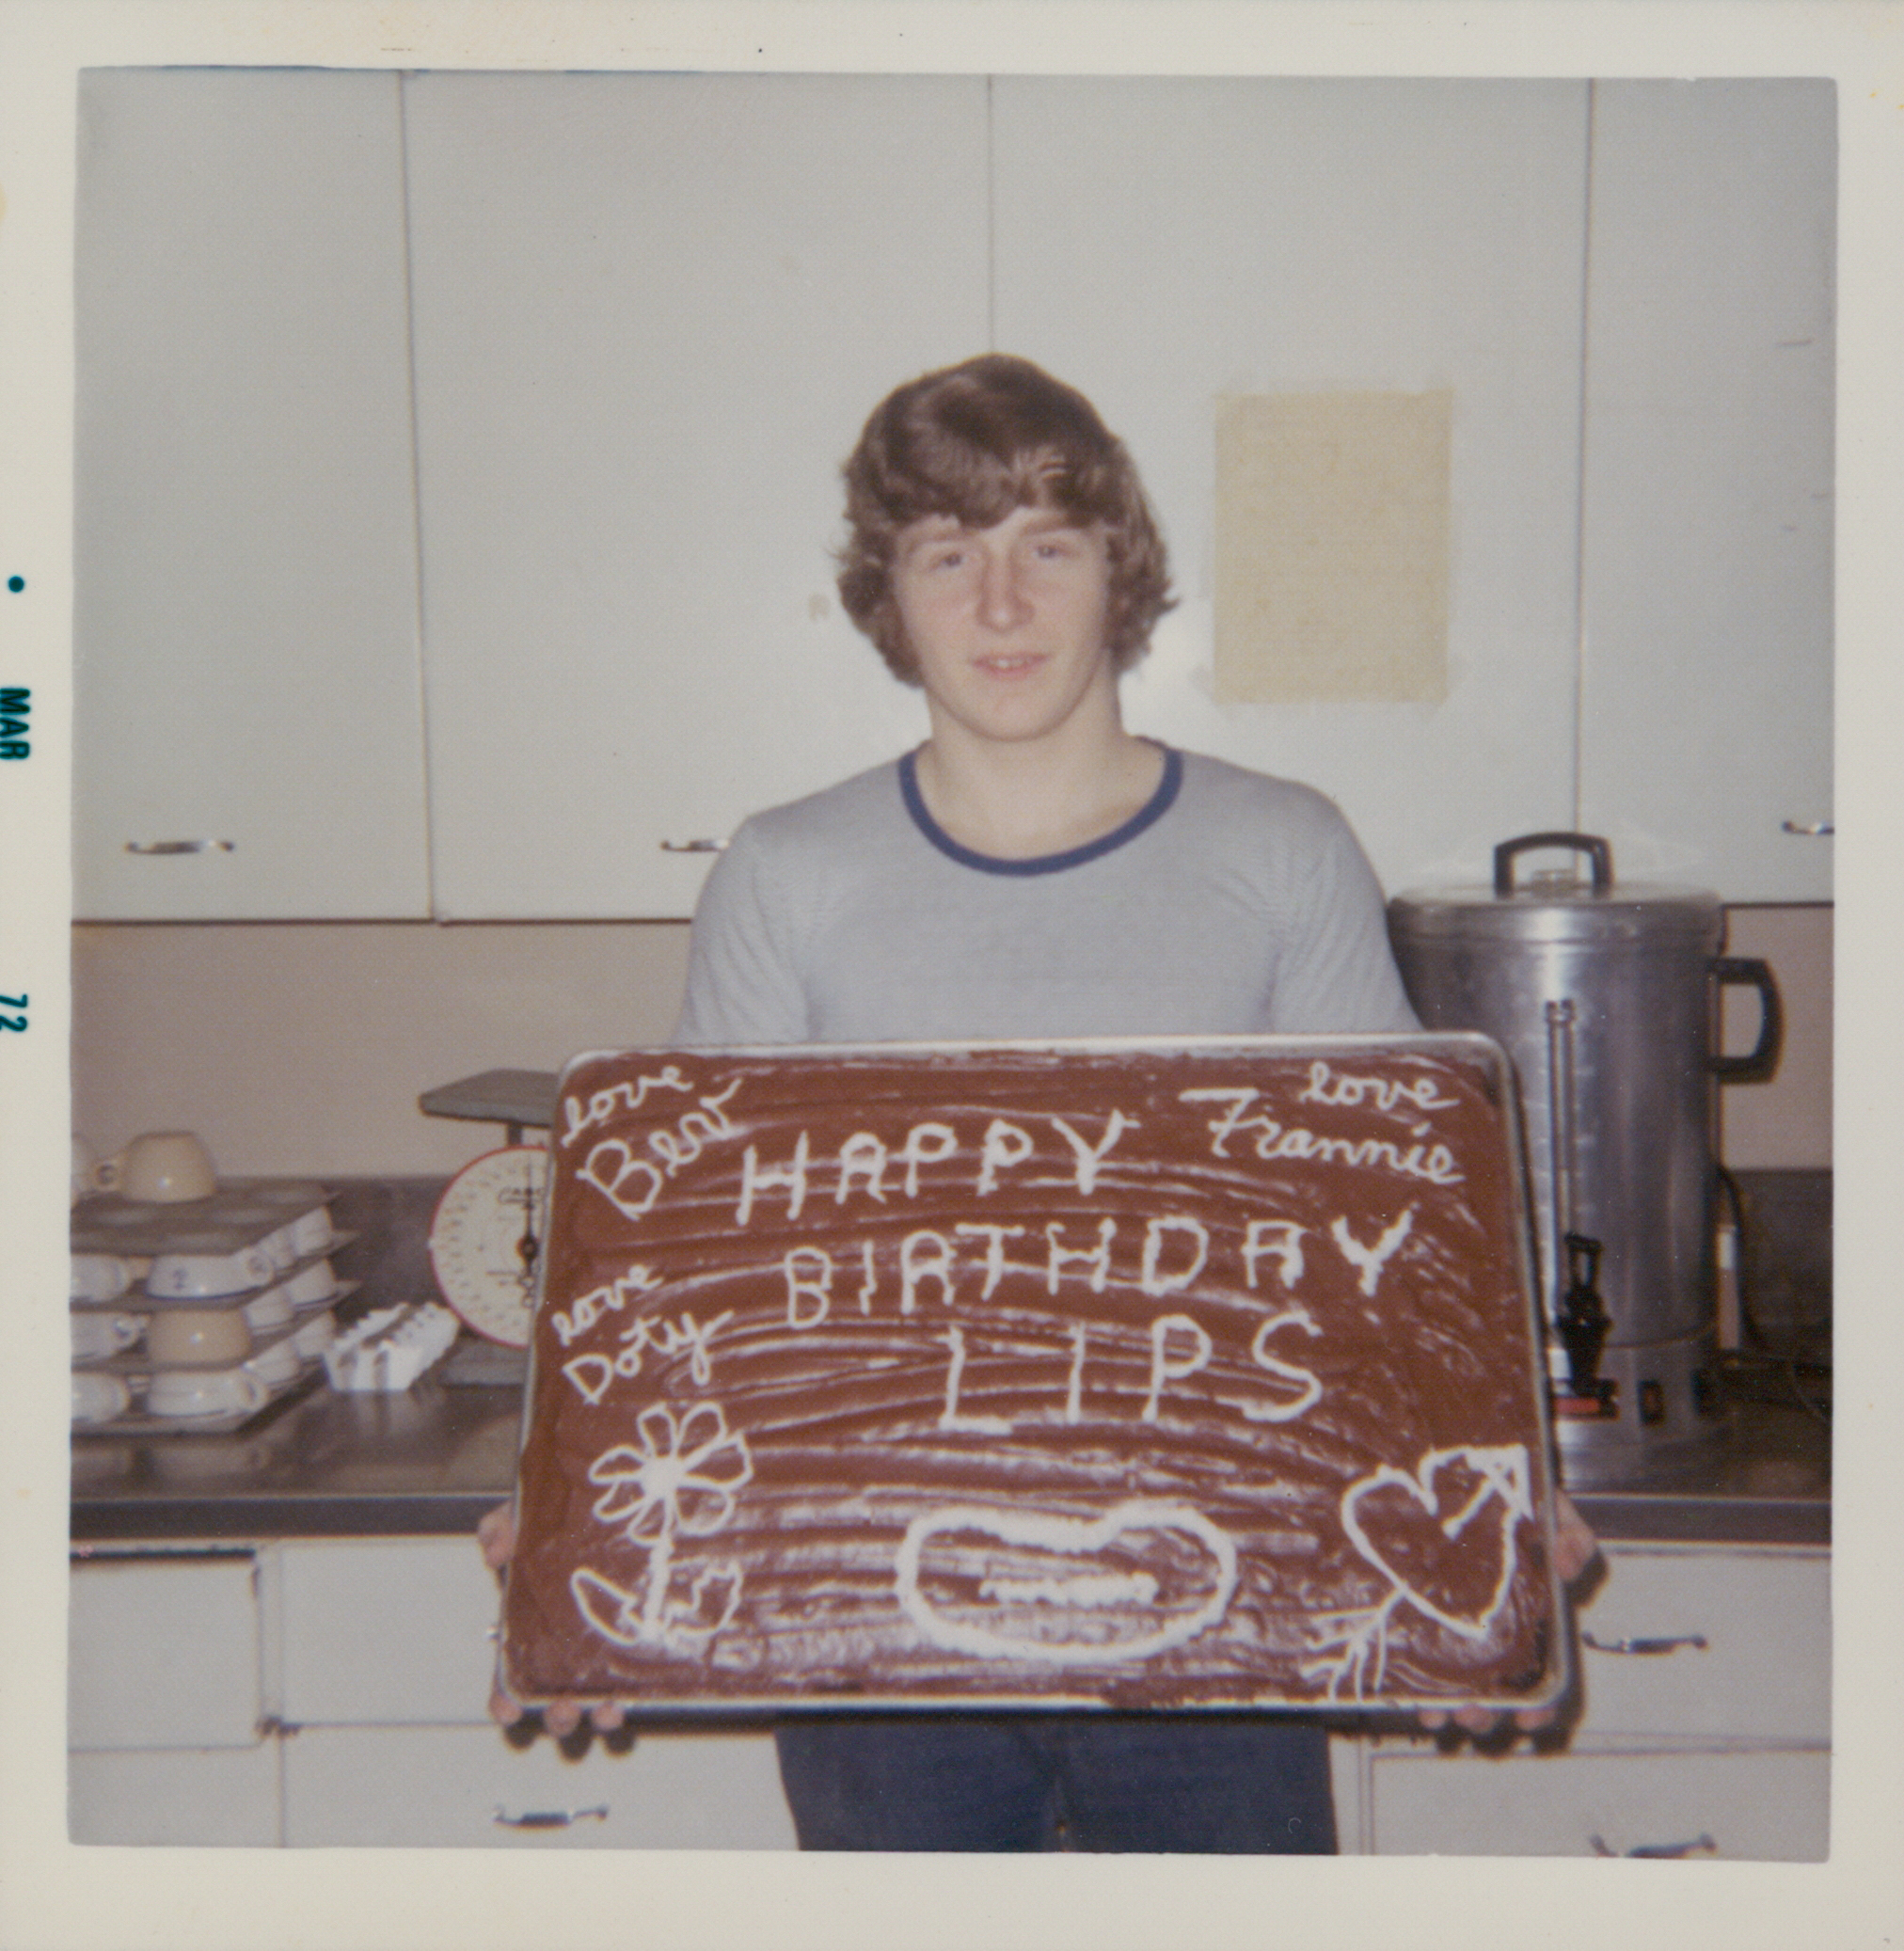 MAR 72
love
Bev
love
Frannie
HAPPY
BIRTHDAY
LIPS
love
Doty
2